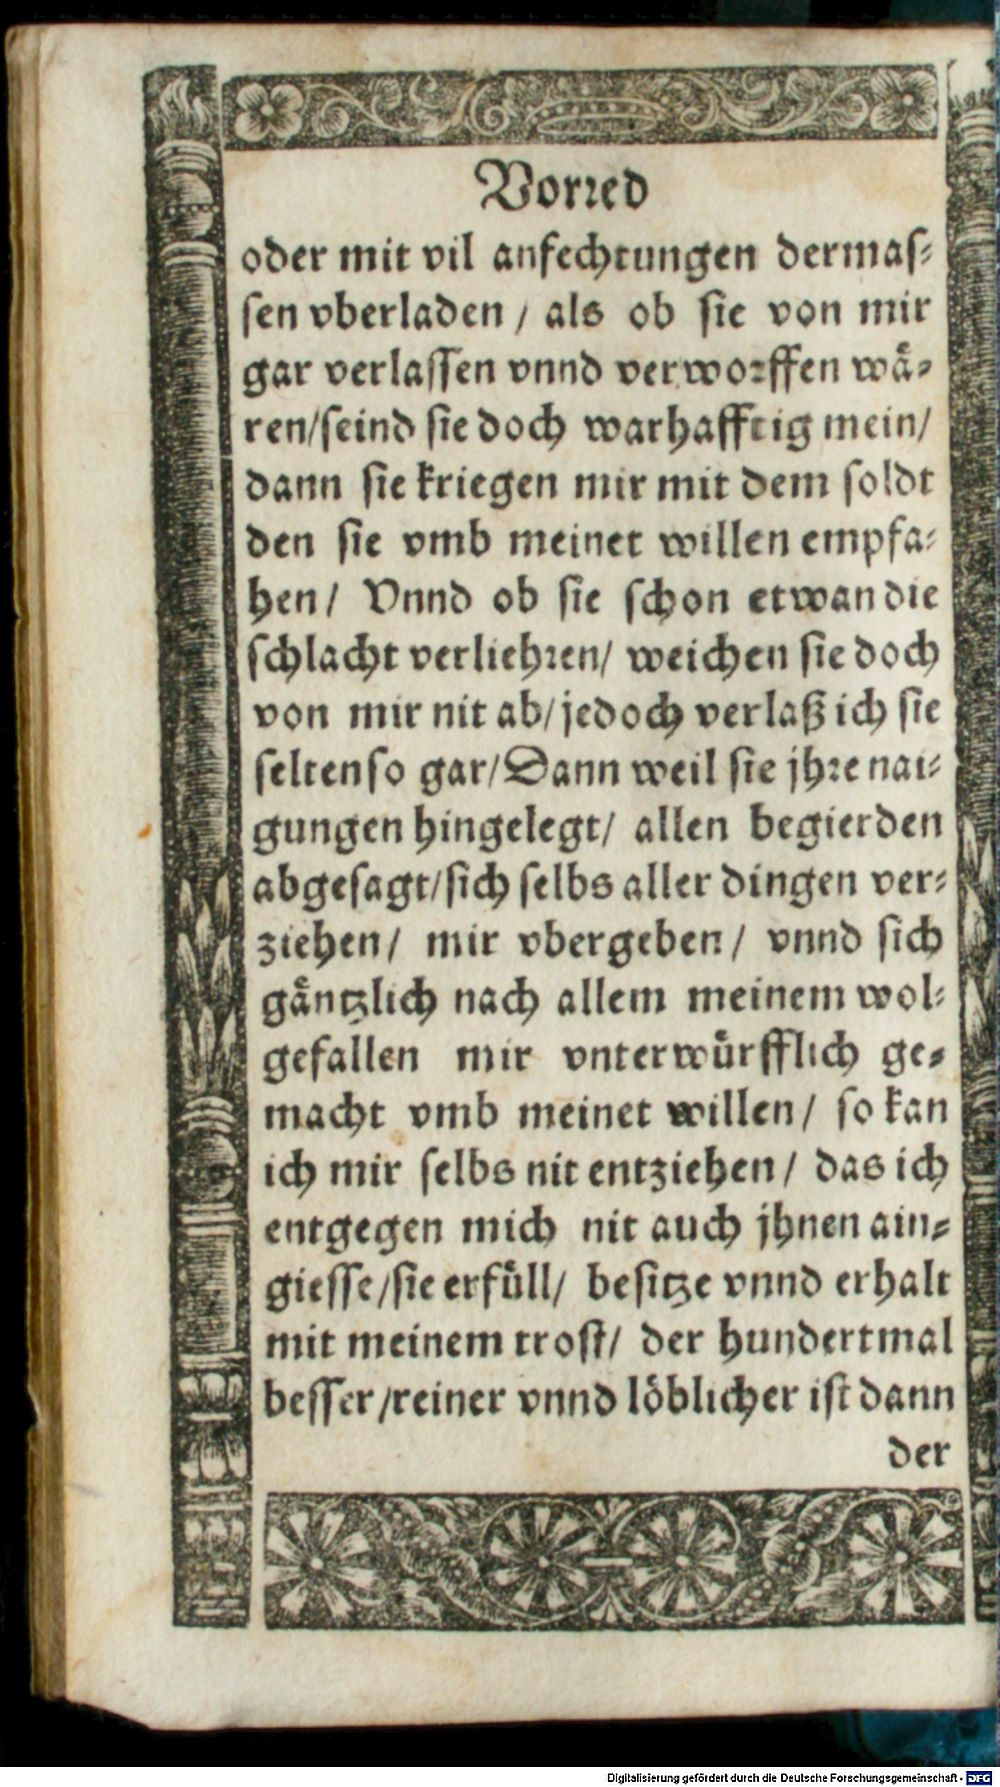 Vorred
oder mit vil anfechtungen dermas⸗
sen vberladen / als ob sie von mir
gar verlassen vnnd verworffen wä⸗
ren/seind sie doch warhafftig mein/
dann sie kriegen mir mit dem soldt
den sie vmb meinet willen empfa⸗
hen/ Vnnd ob sie schon etwan die
schlacht verliehren/ weichen sie doch
von mir nit ab/ jedoch verlaß ich sie
selten so gar/ Dann weil sie jhre nai⸗
gungen hingelegt/ allen begierden
abgesagt/sich selbs aller dingen ver⸗
ziehen/ mir vbergeben/ vnnd sich
gäntzlich nach allem meinem wol⸗
gefallen mir vnterwürfflich ge⸗
macht vmb meinet willen/ so kan
ich mir selbs nit entziehen/ das ich
entgegen mich nit auch jhnen ain⸗
giesse/sie erfüll/ besitze vnnd erhalt
mit meinem trost/ der hundertmal
besser/reiner vnnd löblicher ist dann
der
Digitalisierung gefördert durch die Deutsche Forschungsgemeinschaft - DFG